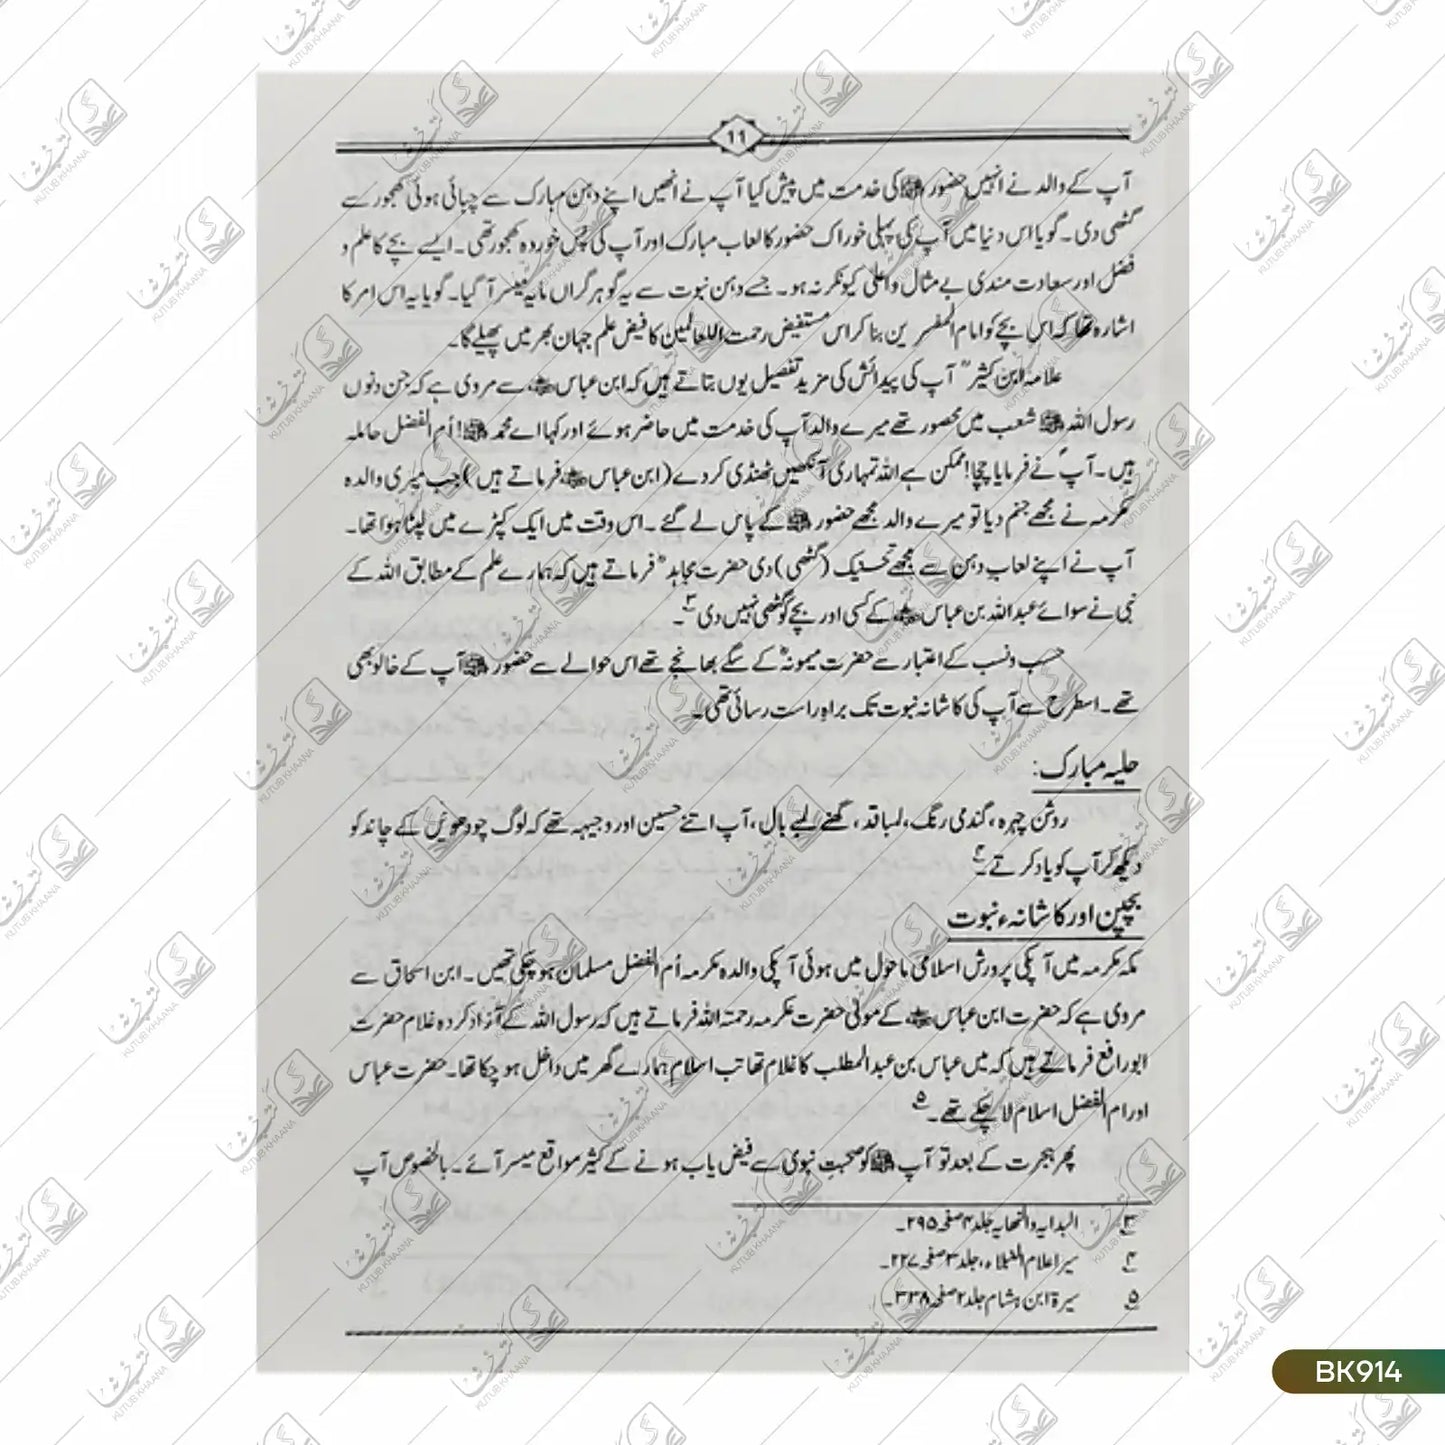 ۱۱
آپ کے والد نے انہیں حضور ﷺ کی خدمت میں پیش کیا آپ نے انھیں اپنے دہن مبارک سے چبائی ہوئی کھجور سے
گٹھی دی۔ گویا اس دنیا میں آپ کی پہلی خوراک حضور کا لعاب مبارک اور آپ کی پس خوردہ کھجور تھی۔ ایسے بچے کا علم و
فضل اور سعادت مندی بے مثال و اعلیٰ کیونکر نہ ہو۔ جسے دہن نبوت سے یہ گوہر گراں مایہ میسر آ گیا۔ گویا یہ اس امر کا
اشارہ تھا کہ اس بچے کو امام المفسرین بنا کر اس مستفیض رحمت اللعالمین کا فیض علم جہان بھر میں پھیلے گا۔
علامہ ابن کثیرؒ آپ کی پیدائش کی مزید تفصیل یوں بتاتے ہیں کہ ابن عباسؓ سے مروی ہے کہ جن دنوں
رسول اللہ ﷺ شعب میں محصور تھے میرے والد آپ کی خدمت میں حاضر ہوئے اور کہا اے محمد ﷺ! اُم الفضل حاملہ
ہیں۔ آپؐ نے فرمایا چچا! ممکن ہے اللہ تمہاری آنکھیں ٹھنڈی کر دے (ابن عباسؓ فرماتے ہیں) جب میری والدہ
مکرمہ نے مجھے جنم دیا تو میرے والد مجھے حضور ﷺ کے پاس لے گئے۔ اس وقت میں ایک کپڑے میں لپٹا ہوا تھا۔
آپ نے اپنے لعاب دہن سے مجھے تحنیک (گٹھی) دی حضرت مجاہدؒ فرماتے ہیں کہ ہمارے علم کے مطابق اللہ کے
نبی نے سوائے عبداللہ بن عباسؓ کے کسی اور بچے کو گٹھی نہیں دی ۳۔
حسب و نسب کے اعتبار سے حضرت میمونہؓ کے سگے بھانجے تھے اس حوالے سے حضور ﷺ آپ کے خالو بھی
تھے۔ اسطرح سے آپ کی کاشانہ نبوت تک براہِ راست رسائی تھی۔
حلیہ مبارک:
روشن چہرہ، گندمی رنگ، لمبا قد، گھنے لمبے بال، آپ اتنے حسین اور وجیہہ تھے کہ لوگ چودھویں کے چاند کو
دیکھ کر آپ کو یاد کرتے۔۴
بچپن اور کاشانۂ نبوت
مکہ مکرمہ میں آپکی پرورش اسلامی ماحول میں ہوئی آپکی والدہ مکرمہ اُم الفضل مسلمان ہو چکی تھیں۔ ابن اسحاق سے
مروی ہے کہ حضرت ابن عباسؓ کے مولیٰ حضرت عکرمہ رحمتہ اللہ فرماتے ہیں کہ رسول اللہ کے آزاد کردہ غلام حضرت
ابورافع فرماتے ہیں کہ میں عباس بن عبدالمطلب کا غلام تھا تب اسلام ہمارے گھر میں داخل ہو چکا تھا۔ حضرت عباس
اور ام الفضل اسلام لا چکے تھے۔۵
پھر ہجرت کے بعد تو آپ ﷺ کو صحبتِ نبوی سے فیض یاب ہونے کے کثیر مواقع میسر آئے۔ بالخصوص آپ
۳ البدایہ والنھایہ جلد ۴ صفحہ ۲۹۵۔
۴ سیر اعلام النبلاء، جلد ۳ صفحہ ۲۲۷۔
۵ سیرۃ ابن ہشام جلد ۲ صفحہ ۳۳۸۔
BK914